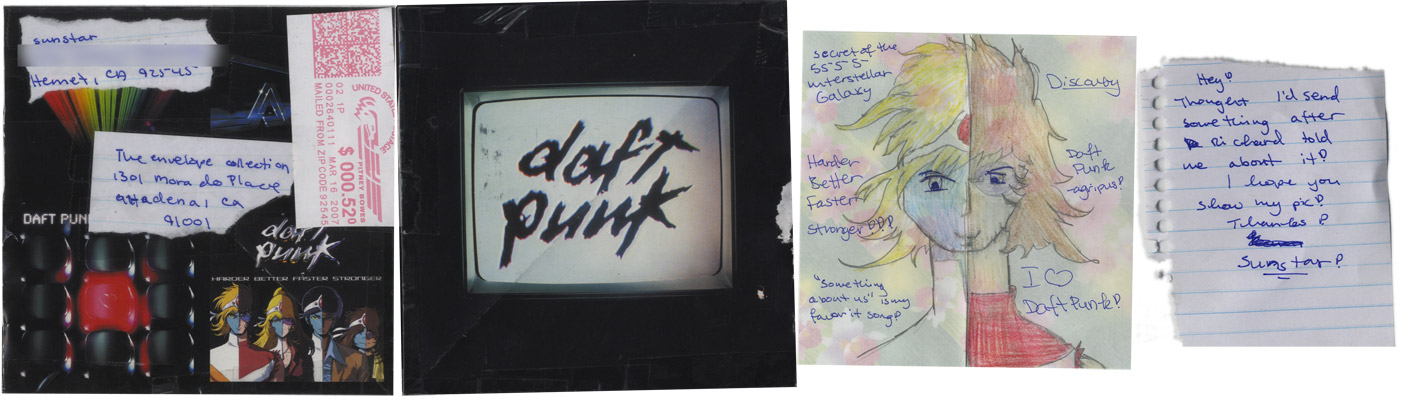 sunstar
Hemet, CA 92545
UNITED STATES POSTAGE
02 1P
0002640111
MAR 16 2007
MAILED FROM ZIP CODE 92545
$ 000.52⁰
PITNEY BOWES
The envelope collection
1301 Morada Place
altadena, ca
91001
DAFT PUN
daft
punk
HARDER BETTER FASTER STRONGER
daft
punk
secret of the
5S-5-5-
interstellar
Galaxy
Discovby
Harder
Better
Faster
Stronger???
Daft
Punk
-agripus?
"Something
about us" is my
favorit song?
I ♡
Daft Punk?
Hey?
Thought I'd send
something after
Richard told
me about it?
I hope you
show my pic?
Thankes?
Sunstar?